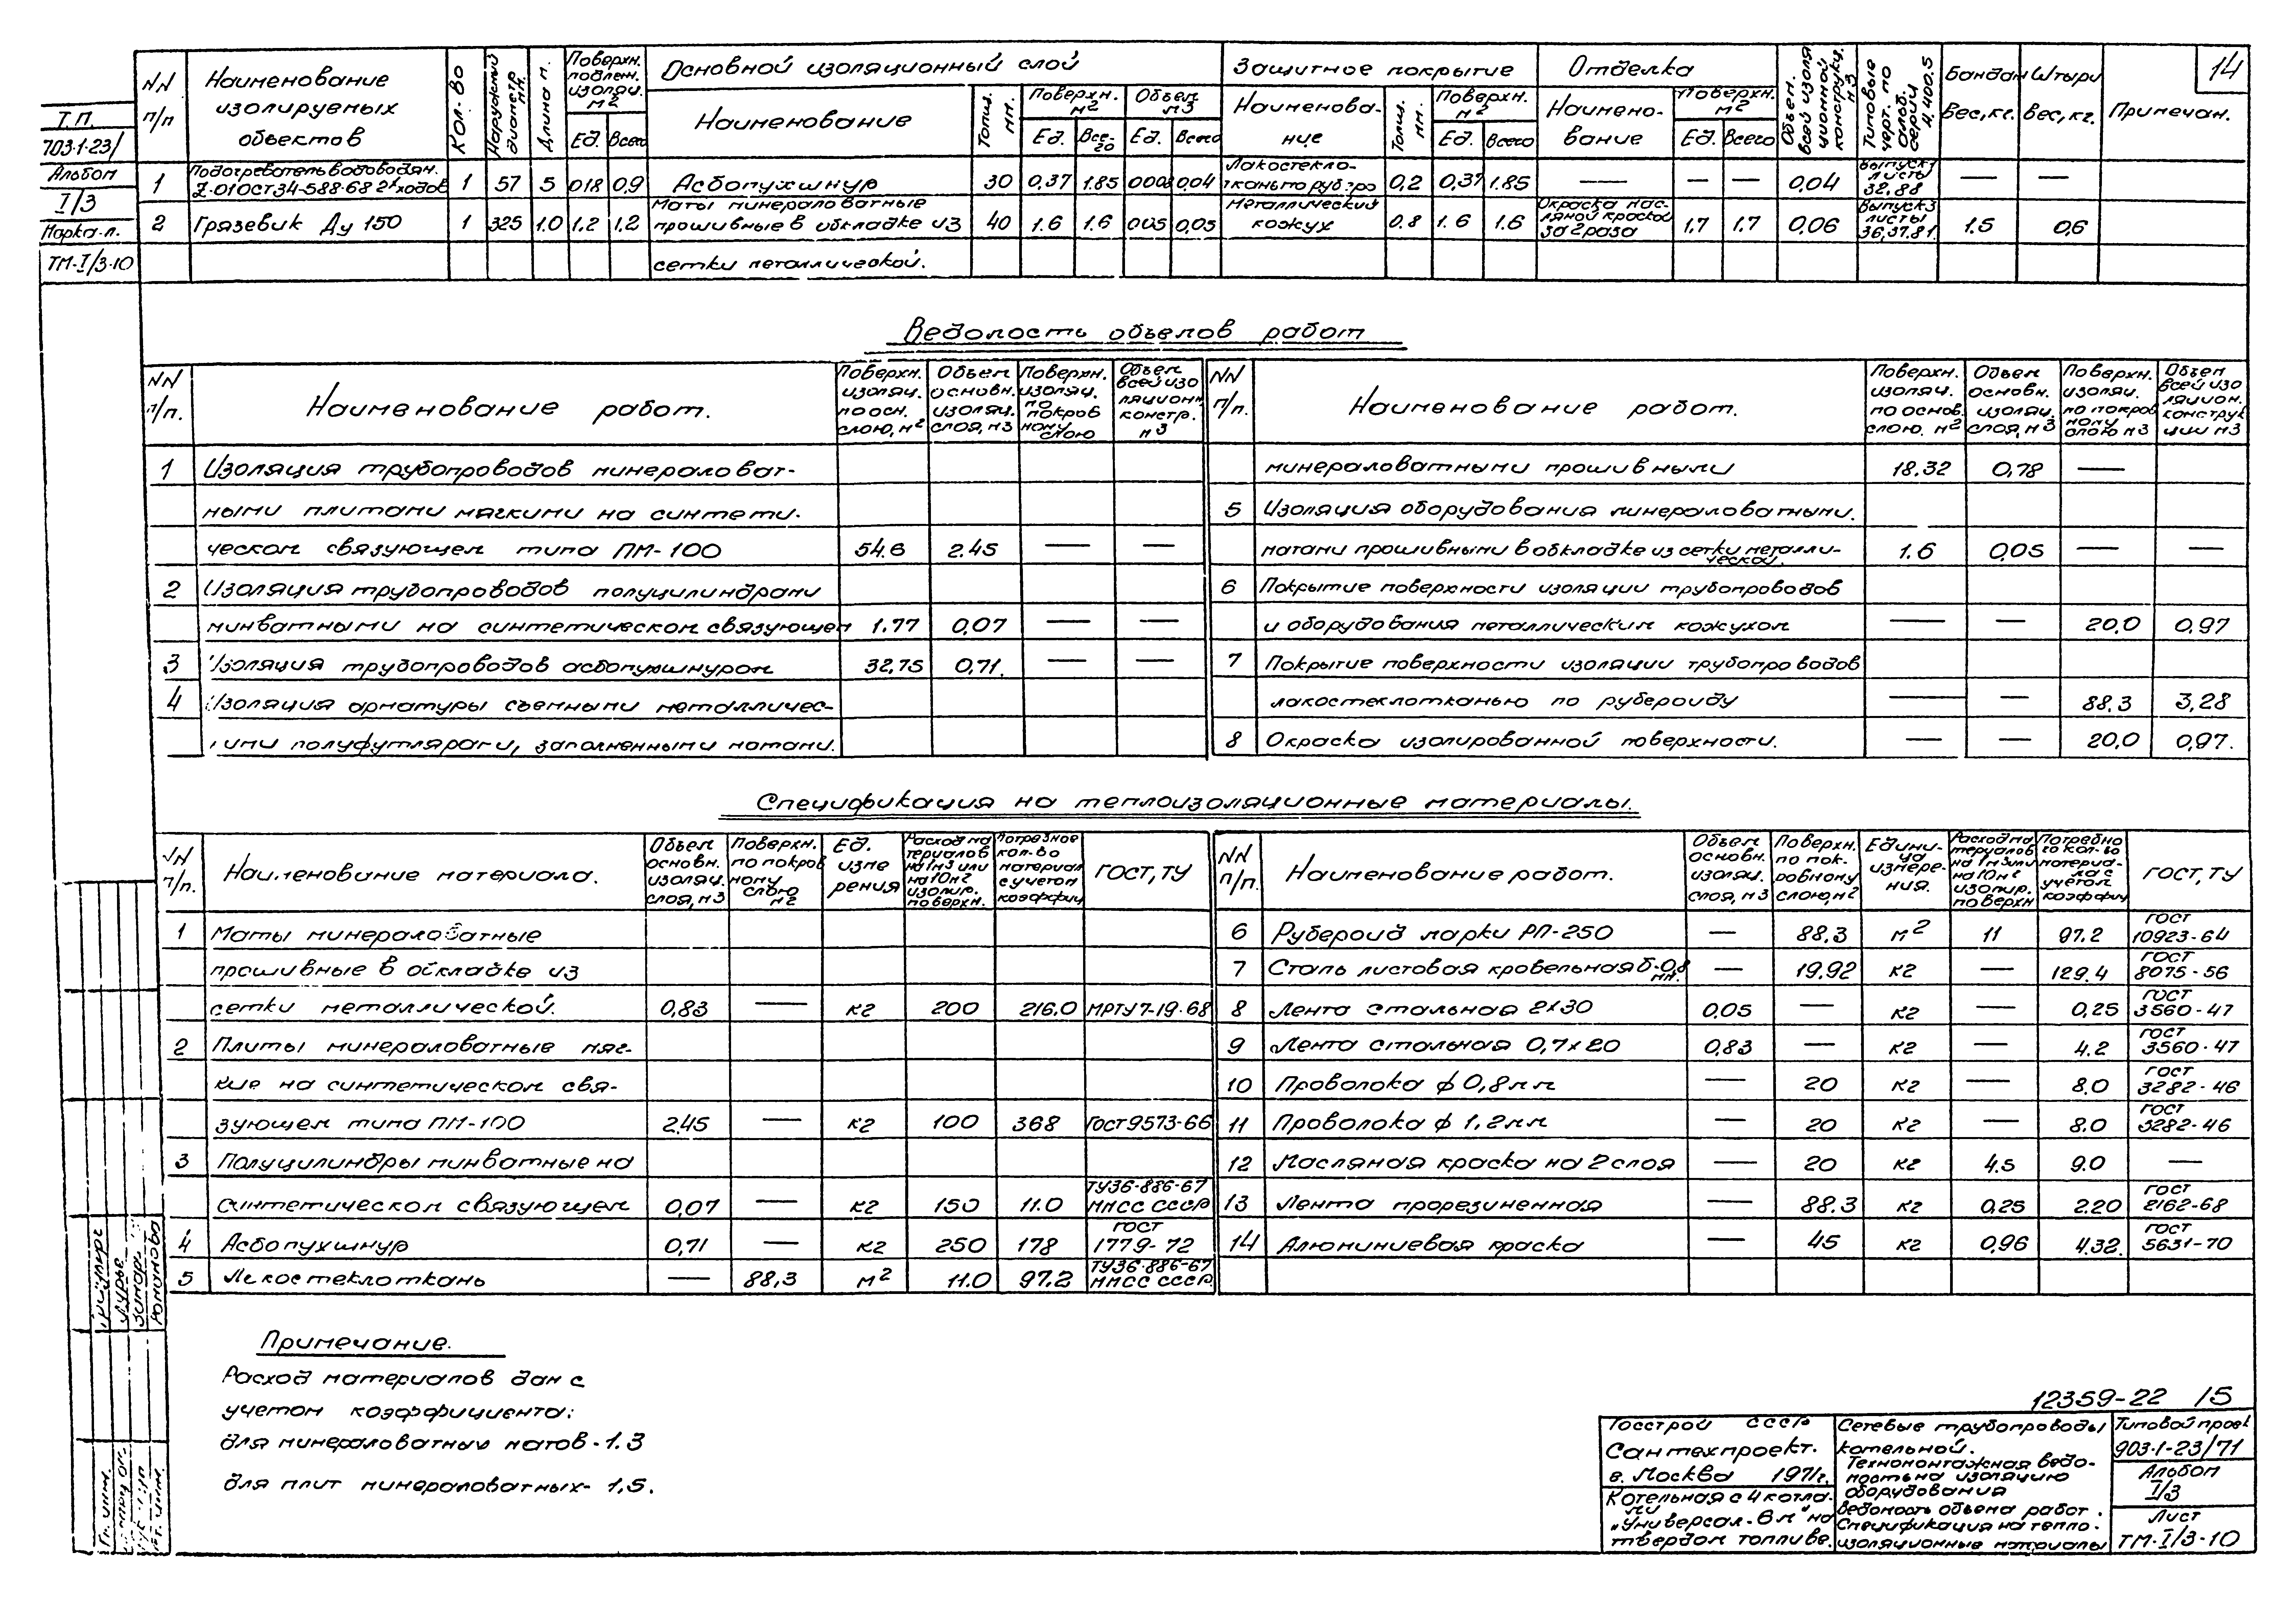 14
Т.П.
703-1-23/
Альбом
I/3
Марка-л.
ТМ-I/3-10
NN п/п
Наименование изолируемых объектов
Кол-во
Наружный диаметр мм.
Длина м.
Поверхн. подлеж. изоляц. м2
Ед. Всего
Основной изоляционный слой
Наименование
Толщ. мм.
Поверхн. м2
Ед. Всего
Объем м3
Ед. Всего
Защитное покрытие
Наименование
Толщ. мм.
Поверхн. м2
Ед. Всего
Отделка
Наимено-вание
Поверхн. м2
Ед. Всего
Объем. всей изоляционной конструкц. м3
Типовые черт. по альб. серии 4.400.5
Бандаж Вес, кг.
Штыри Вес, кг.
Примечан.
1 Подогреватель водоводян. Z-01 ОСТ34-588-68 2х ходов 1 57 5 018 0,9 Асбопухшнур 30 0,37 1.85 0,04 Лакостекло-ткань по 0,2 0,37 1.85 — — — 0,04 Выпуск 1 листы 32,88 — —
2 Грязевик Ду 150 1 325 1.0 1,2 1,2 Маты минераловатные прошивные в обкладке из 40 1.6 1.6 005 0,05 Металлический кожух 0.8 1.6 1.6 Окраска мас-ляной краской за 2 раза 1,7 1,7 0,06 Выпуск 3 листы 36,37.81. 1.5 0,6
сетки металлической.
Ведомость объемов работ
NN п/п.
Наименование работ.
Поверхн. изоляц. по осн. слою, м2
Объем основн. изоляц. слоя, м3
Поверхн. изоляц. по покров ному слою
Объем всей изо ляцион констр. м3
NN п/п.
Наименование работ.
Поверхн. изоляц. по основ. слою. м2
Объем основн. изоляц. слоя, м3
Поверхн. изоляц. по покров ному слою м3
Объем всей изо ляцион. конструк ции м3
1 Изоляция трубопроводов минераловат-
ными плитами мягкими на синтети-
ческом связующем типа ПМ-100 54.6 2.45 — —
2 Изоляция трубопроводов полуцилиндрами
минватными на синтетическом связующем 1.77 0,07 — —
3 Изоляция трубопроводов асбопухшнуром 32,75 0,71. — —
4 Изоляция арматуры съемными металличес-
кими полуфутлярами, заполненными матами.
минераловатными прошивными 18.32 0,78 —
5 Изоляция оборудования минераловатными.
матами прошивными в обкладке из сетки металли-ческой. 1.6 0,05 — —
6 Покрытие поверхности изоляции трубопроводов
и оборудования металлическим кожухом — — 20,0 0,97
7 Покрытие поверхности изоляции трубопроводов
лакостеклотканью по рубероиду — — 88.3 3,28
8 Окраска изолированной поверхности. — — 20,0 0,97.
Спецификация на теплоизоляционные материалы.
NN п/п.
Наименование материала.
Объем основн. изоляц. слоя, м3
Поверхн. по покров ному слою м2
Ед. изме рения
Расход ма териалов на 1м3 или на 10м2 изолир. поверхн.
Потребное кол-во материал с учетом коэффиц
ГОСТ, ТУ
NN п/п.
Наименование работ.
Объем основн. изоляц. слоя, м3
Поверхн. по пок-ровному слою, м2
Едини-ца измере-ния.
Расход ма териалов на 1м3 или на 10м2 изолир. поверхн
Потребно е кол-во материа-ла с учетом коэффиц
ГОСТ, ТУ
1 Маты минераловатные
прошивные в обкладке из
сетки металлической. 0,83 — кг 200 216.0 МРТУ7-19-68
2 Плиты минераловатные мяг-
кие на синтетическом свя-
зующем типа ПМ-100 2.45 — кг 100 368 Гост 9573-66
3 Полуцилиндры минватные на
синтетическом связующем 0,07 — кг 150 11.0 ТУ36-886-67 ММСС СССР
4 Асбопухшнур 0,71 — кг 250 178 ГОСТ 1779-72
5 Лакостеклоткань — 88,3 м2 11.0 97.2 ТУ36-886-67 ММСС СССР.
6 Рубероид марки РП-250 — 88.3 м2 11 97.2 ГОСТ 10923-64
7 Сталь листовая кровельная б-0,8 мм. — 19.92 кг — 129.4 ГОСТ 8075-56
8 Лента стальная 2х30 0.05 — кг 0,25 ГОСТ 3560-47
9 Лента стальная 0,7х20 0,83 — кг 4.2 ГОСТ 3560-47
10 Проволока ф 0,8мм — 20 кг — 8.0 ГОСТ 3282-46
11 Проволока ф 1,2мм — 20 кг — 8.0 ГОСТ 3282-46
12 Масляная краска на 2 слоя — 20 кг 4.5 9.0 —
13 Лента прорезиненная — 88.3 кг 0,25 2.20 ГОСТ 2162-68
14 Алюминиевая краска — 45 кг 0,96 4.32. ГОСТ 5631-70
Примечание.
Расход материалов дан с
учетом коэффициента:
для минераловатных матов-1.3
для плит минераловатных- 1,5.
12359-22 15
Госстрой СССР
Сантехпроект.
г. Москва 1971г.
Котельная с 4 котла-
ми
„Универсал-6м" на
твердом топливе.
Сетевые трубопроводы
котельной.
Техномонтажная ведо-
мость на изоляцию
оборудования
Ведомость объема работ.
Спецификация на тепло-
изоляционные материалы
Типовой проек
903-1-23/71
Альбом
I/3
Лист
ТМ-I/3-10